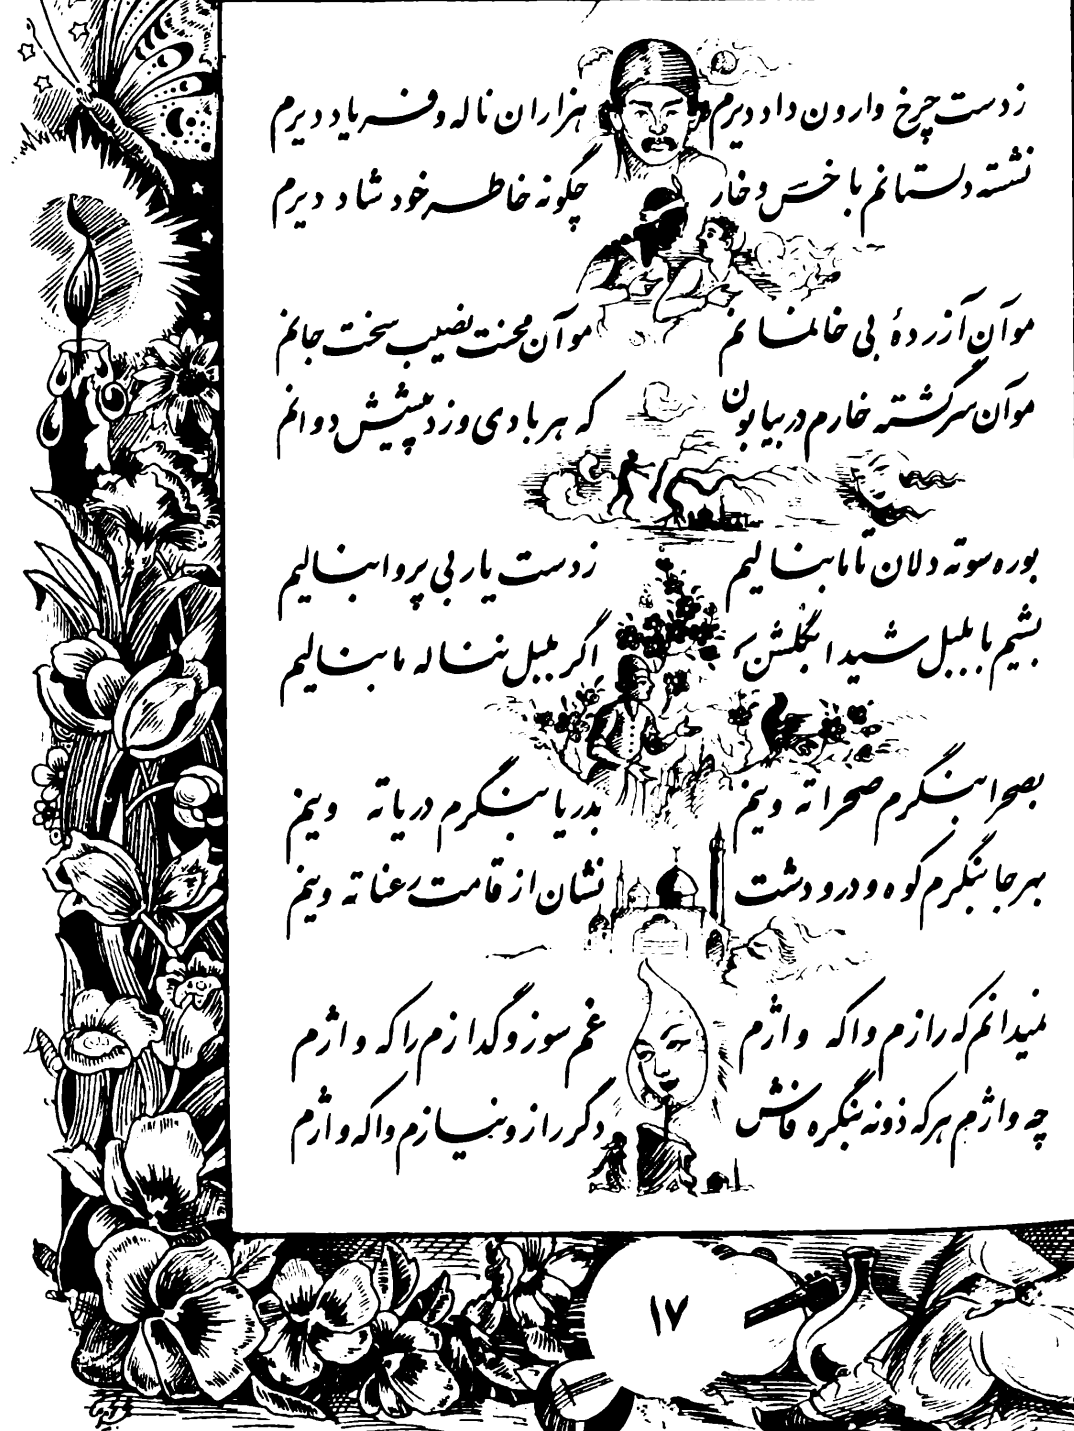 زدست چرخ وارون داد دیرم هزاران ناله و فریاد دیرم
نشسته دلستانم با خس و خار چگونه خاطر خود شاد دیرم
مو آن آزردهٔ بی خانمانم مو آن محنت نصیب سخت جانم
مو آن سرگشته خارم در بیابون که هر بادی وزد پیشش دوانم
بوره سوته دلان تا ما بنالیم زدست یار بی پروا بنالیم
بشیم با بلبل شیدا بگلشن اگر بلبل نناله ما بنالیم
بصحرا بنگرم صحرا ته وینم بدریا بنگرم دریا ته وینم
بهر جا بنگرم کوه و در و دشت نشان از قامت رعنا ته وینم
نمیدانم که رازم واکه واژم غم سوز و گدازم راکه واژم
چه واژم هر که ذونه بنگره فاش دگر راز و نیازم واکه واژم
۱۷